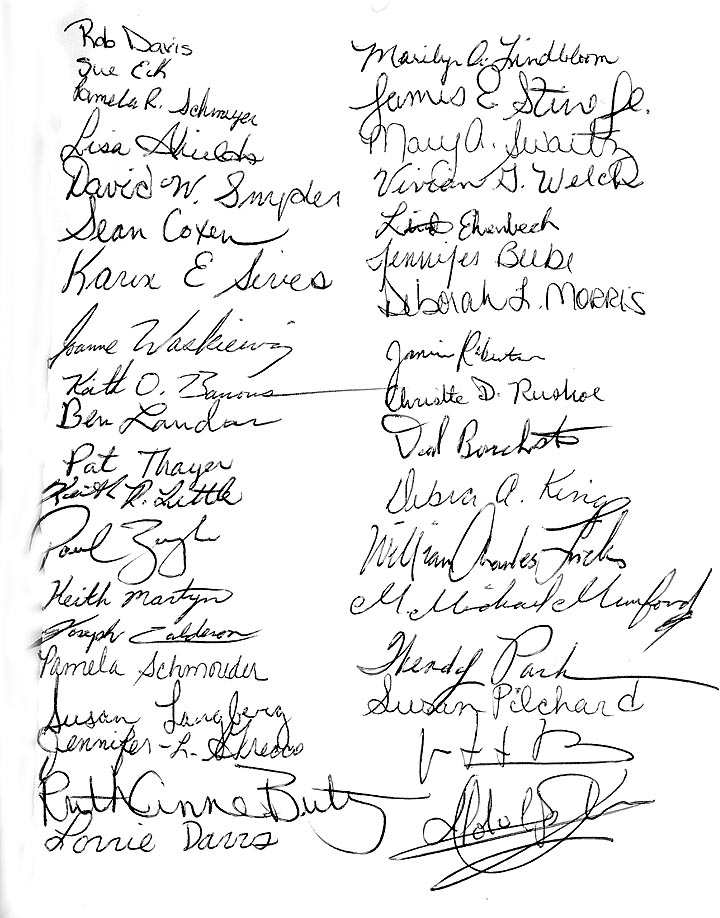 Rob Davis
Sue Eck
Pamela R. Schmuyer
Lisa Shields
David W. Snyder
Sean Coxen
Karen E Sires
Joanne Waskiewicz
Keith O. Barrows
Ben Landon
Pat Thayer
Keith R. Little
Paul
Keith Martyn
Joseph Calderon
Pamela Schmouder
Susan Langberg
Jennifer L.
Ruth Anne Butz
Lorrie Davis
Marilyn A. Lindbloom
James E Stine Jr.
Mary A. Swartz
Vivian G. Welch
Ehrenbech
Jennifer Beebe
Deborah L. MORRIS
Christle D. Rushoe
Debra A. King
William Charles
M. Michael Mumford
Wendy Park
Susan Pilchard